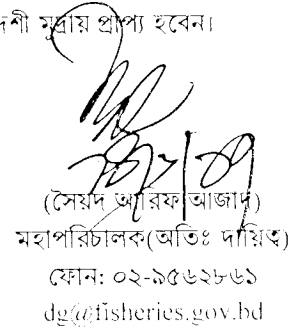 দেশী মুদ্রায় প্রাপ্য হবেন।
(সৈয়দ আরিফ আজাদ)
মহাপরিচালক(অতিঃ দায়িত্ব)
ফোন: ০২-৯৫৬২৮৬১
dg@fisheries.gov.bd